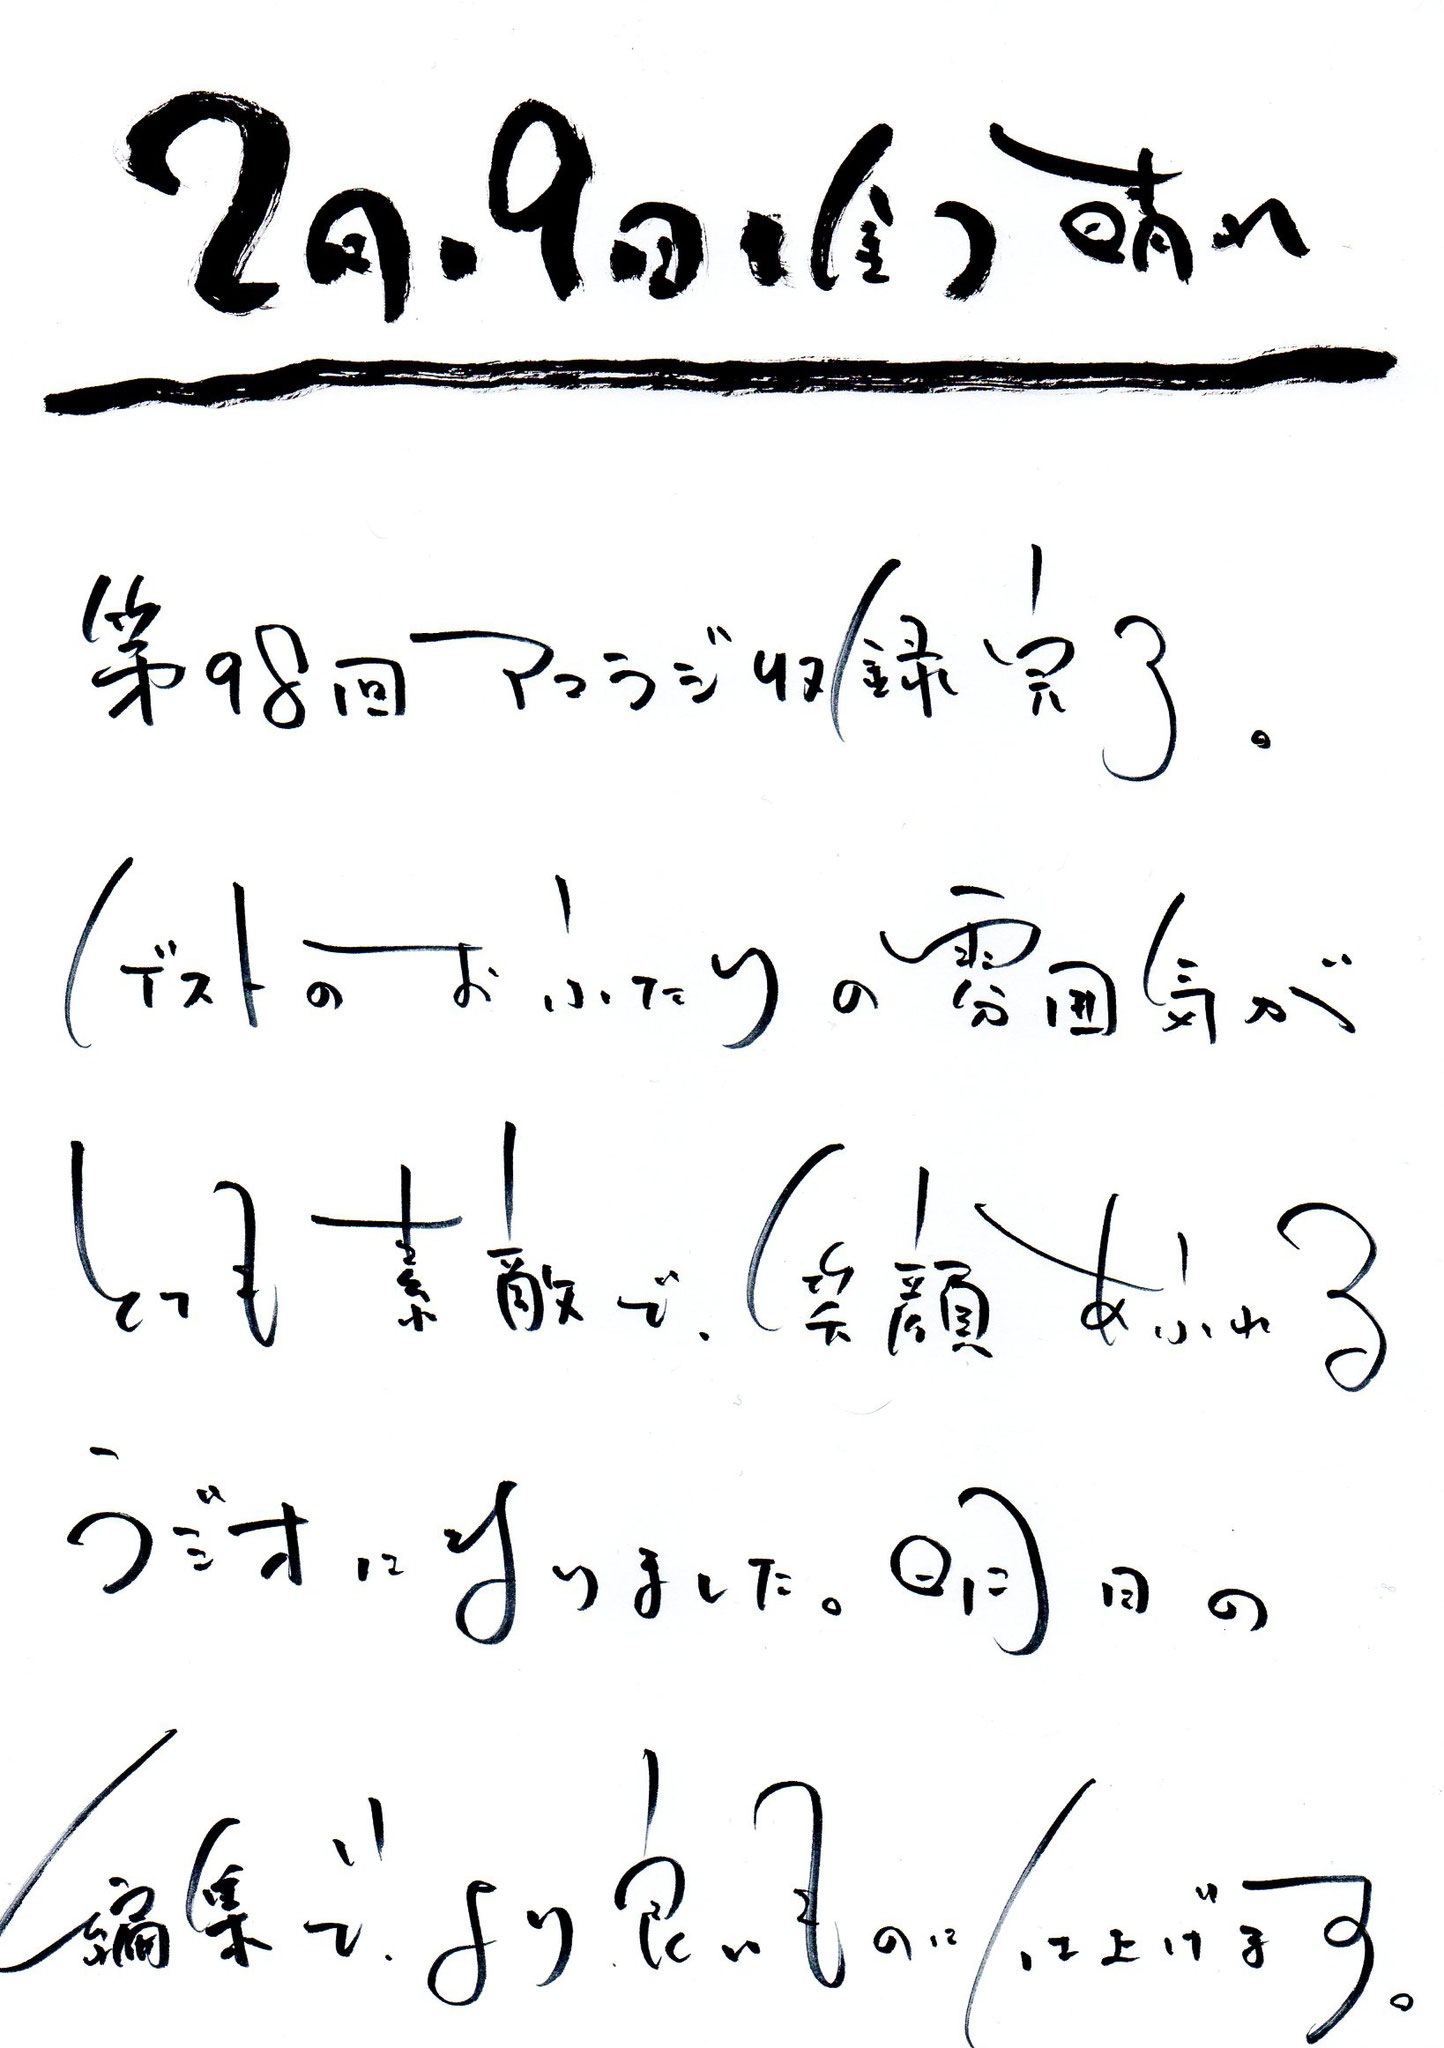 2月.9日.(金)晴れ
第98回アコラジ収録完了。
ゲストのおふたりの雰囲気が
とても素敵で、笑顔あふれる
ラジオになりました。明日の
編集で、より良いものに仕上げます。